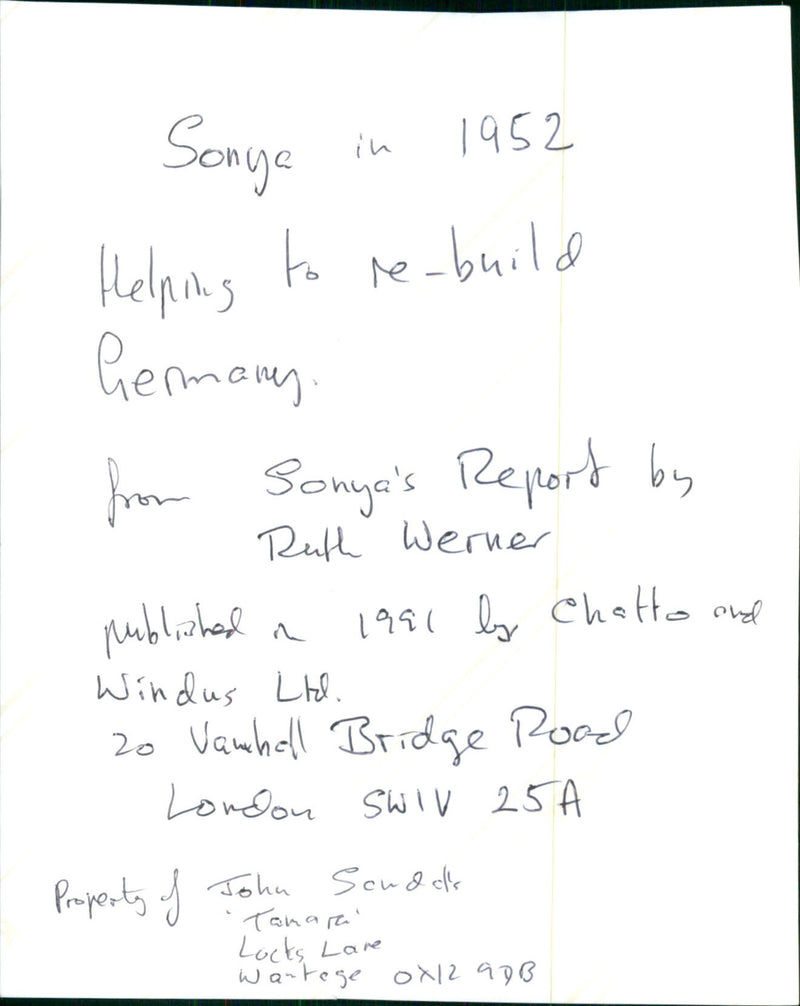 Sonya in 1952
Helping to re-build
Germany.
from Sonya's Report by
Ruth Werner
published in 1991 by Chatto and
Windus Ltd.
20 Vauxhall Bridge Road
London SW1V 25A
Property of John
Locks Lane
Wantage OX12 9DB